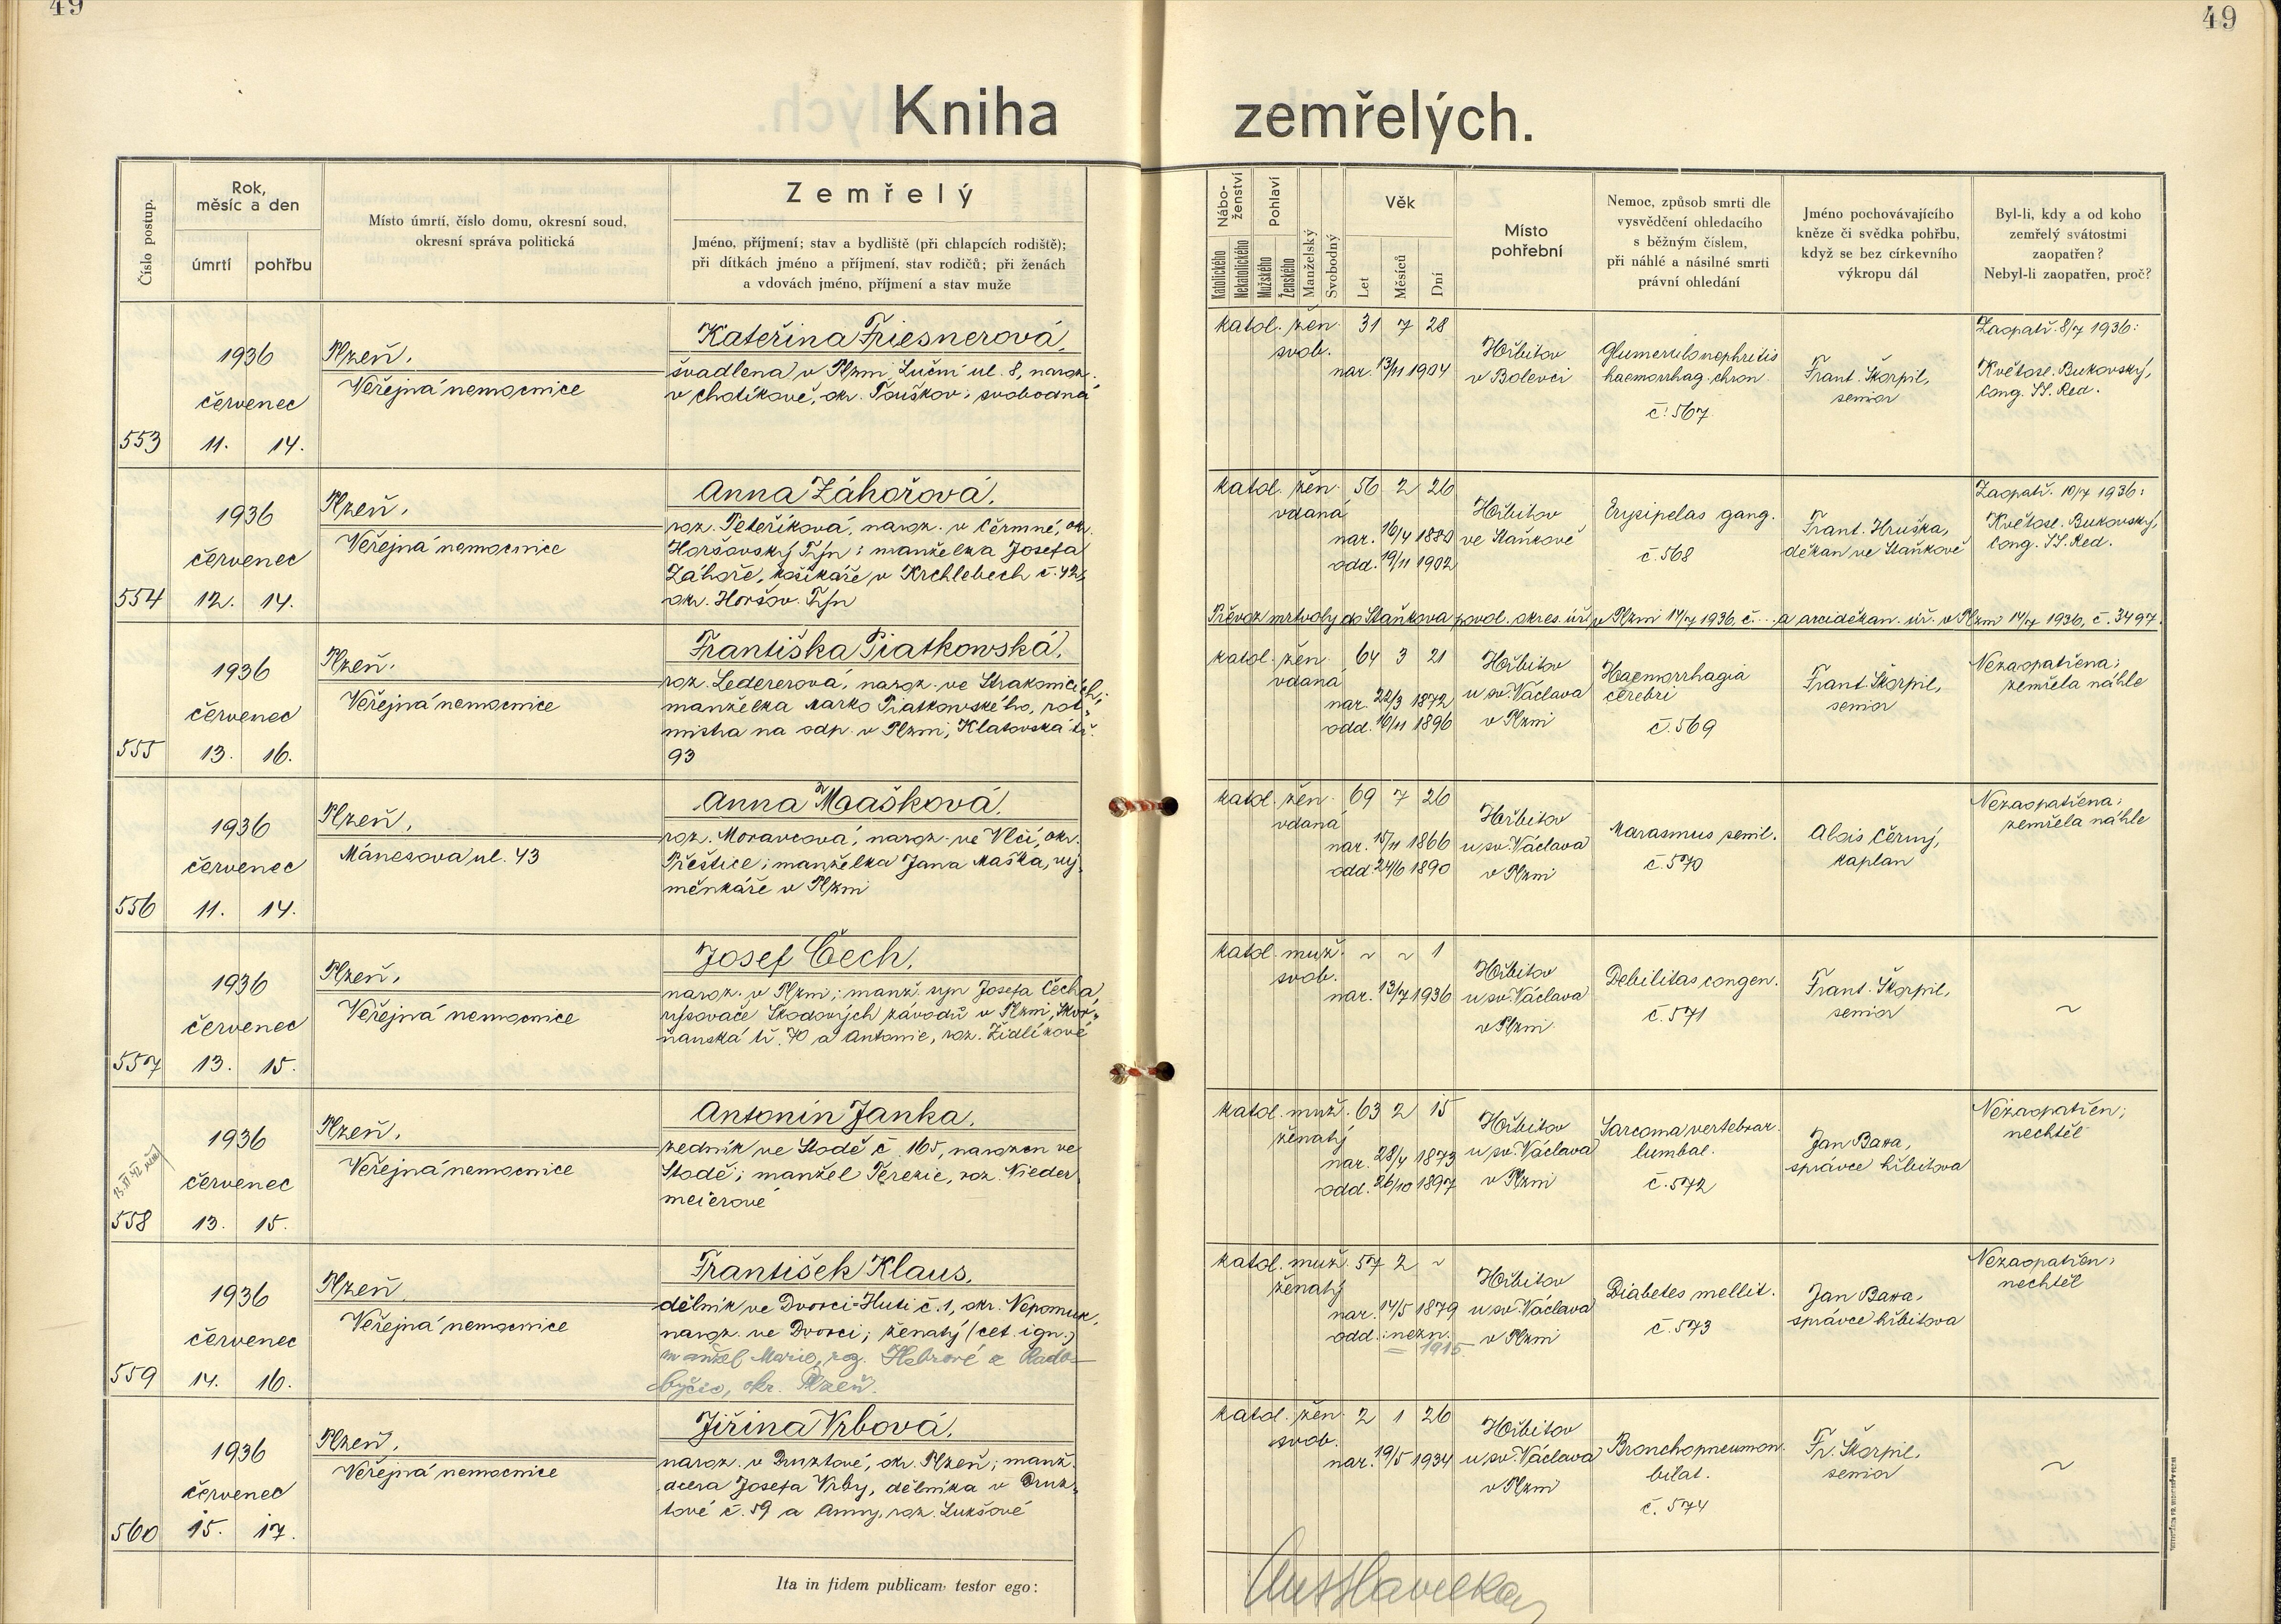 49
49
Kniha zemřelých.
Číslo postup.
Rok,
měsíc a den
úmrtí
pohřbu
Místo úmrtí, číslo domu, okresní soud,
okresní správa politická
Zemřelý
Jméno, příjmení; stav a bydliště (při chlapcích rodiště);
při dítkách jméno a příjmení, stav rodičů; při ženách
a vdovách jméno, příjmení a stav muže
Nábo-
ženství
Katolického
Nekatolického
Pohlaví
Mužského
Ženského
Manželský
Svobodný
Věk
Let
Měsíců
Dní
Místo
pohřební
Nemoc, způsob smrti dle
vysvědčení ohledacího
s běžným číslem,
při náhlé a násilné smrti
právní ohledání
Jméno pochovávajícího
kněze či svědka pohřbu,
když se bez církevního
výkropu dál
Byl-li, kdy a od koho
zemřelý svátostmi
zaopatřen?
Nebyl-li zaopatřen, proč?
553
1936
červenec
11. 14.
Plzeň,
Veřejná nemocnice
Kateřina Friesnerová,
švadlena v Plzni, Luční ul. 8, naroz.
v Chotíkově, okr. Touškov; svobodná
katol. žen. 31 7 28
svob.
nar. 13/11 1904
Hřbitov
v Bolevci
Glumerulonephritis
haemorrhag. chron.
č. 567
Frant. Škorpil,
senior
Zaopatř. 8/7 1936:
Květosl. Bukovský,
Cong. SS. Red.
554
1936
červenec
12. 14.
Plzeň,
Veřejná nemocnice
Anna Záhořová,
roz. Peteříková, naroz. v Čermné, ok.
Horšovský Týn; manželka Josefa
Záhoře, košíkáře v Krchlebech č. 42,
okr. Horšov. Týn
katol. žen. 56 2 26
vdaná
nar. 16/4 1880
odd. 19/11 1902
Hřbitov
ve Staňkově
Erysipelas gang.
č. 568
Frant. Hruška,
děkan ve Staňkově
Zaopatř. 10/7 1936:
Květosl. Bukovský,
Cong. SS. Red.
Převoz mrtvoly do Staňkova povol. okres. úř. v Plzni 14/7 1936, č. ... a arciděkan. úř. v Plzni 14/7 1936, č. 3497.
555
1936
červenec
13. 16.
Plzeň,
Veřejná nemocnice
Františka Piatkowská,
roz. Ledererová, naroz. ve Strakonicích;
manželka Marko Piatkowského, rot-
mistra na odp. v Plzni, Klatovská tř.
93
katol. žen. 64 3 21
vdaná
nar. 22/3 1872
odd. 16/11 1896
Hřbitov
u sv. Václava
v Plzni
Haemorrhagia
cerebri
č. 569
Frant. Škorpil,
senior
Nezaopatřena;
zemřela náhle
556
1936
červenec
11. 14.
Plzeň,
Mánesova ul. 43
Anna Maašková,
roz. Moravcová, naroz. ve Vlčí, okr.
Přeštice; manželka Jana Maška, vý-
měnkáře v Plzni
katol. žen. 69 7 26
vdaná
nar. 15/11 1866
odd. 24/6 1890
Hřbitov
u sv. Václava
v Plzni
Marasmus senil.
č. 570
Alois Černý,
kaplan
Nezaopatřena;
zemřela náhle
557
1936
červenec
13. 15.
Plzeň,
Veřejná nemocnice
Josef Čech,
naroz. v Plzni; manž. syn Josefa Čecha,
rýsovače Škodových závodů v Plzni, Skvr-
ňanská tř. 70 a Antonie, roz. Židlíkové
katol. muž. ~ ~ 1
svob.
nar. 13/7 1936
Hřbitov
u sv. Václava
v Plzni
Debilitas congen.
č. 571
Frant. Škorpil,
senior
~
558
1936
červenec
13. 15.
Plzeň,
Veřejná nemocnice
Antonín Janka,
zedník ve Stodě č. 165, narozen ve
Stodě; manžel Terezie, roz. Nieder-
meierové
katol. muž. 63 2 15
ženatý
nar. 28/4 1873
odd. 26/10 1897
Hřbitov
u sv. Václava
v Plzni
Sarcoma vertebrar.
lumbal.
č. 572
Jan Baxa,
správce hřbitova
Nezaopatřen;
nechtěl
559
1936
červenec
14. 16.
Plzeň,
Veřejná nemocnice
František Klaus,
dělník ve Dvorci-Huti č. 1, okr. Nepomuk,
naroz. ve Dvorci; ženatý (cet. ign.)
manžel Marie, roz. Hebrové z Rado-
byčic, okr. Plzeň.
katol. muž. 57 2 ~
ženatý
nar. 14/5 1879
odd.: nezn.
= 1915
Hřbitov
u sv. Václava
v Plzni
Diabetes mellit.
č. 573
Jan Baxa,
správce hřbitova
Nezaopatřen;
nechtěl
560
1936
červenec
15. 17.
Plzeň,
Veřejná nemocnice
Jiřina Vrbová,
naroz. v Druztové, okr. Plzeň; manž.
dcera Josefa Vrby, dělníka v Druz-
tové č. 59 a Anny, roz. Lukšové
katol. žen. 2 1 26
svob.
nar. 19/5 1934
Hřbitov
u sv. Václava
v Plzni
Bronchopneumon.
bilat.
č. 574
Fr. Škorpil,
senior
~
Ita in fidem publicam testor ego: